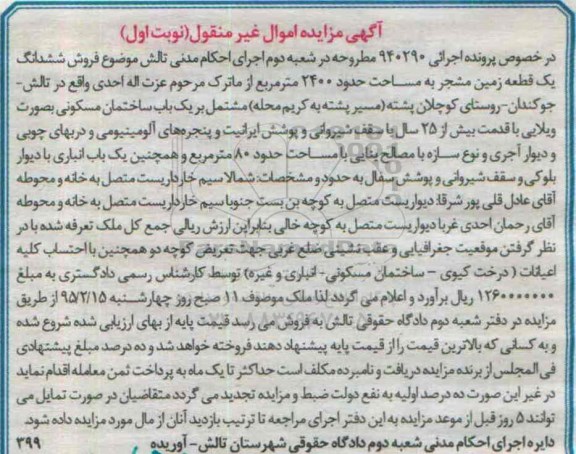 آگهی مزایده اموال غیر منقول(نوبت اول)
در خصوص پرونده اجرائی ۹۴۰۲۹۰ مطروحه در شعبه دوم اجرای احکام مدنی تالش موضوع فروش ششدانگ
یک قطعه زمین مشجر به مساحت حدود ۲۴۰۰ مترمربع از ماترک مرحوم عزت اله احدی واقع در تالش-
جوکندان-روستای کوچلان پشته(مسیر پشته به کریم محله)مشتمل بر یک باب ساختمان مسکونی بصورت
ویلایی با قدمت بیش از ۲۵ سال با سقف شیروانی و پوشش ایرانیت و پنجره‌های آلومینیومی و دربهای چوبی
و دیوار آجری و نوع سازه با مصالح بنایی با مساحت حدود ۸۰ مترمربع و همچنین یک باب انباری با دیوار
بلوکی و سقف شیروانی و پوشش سفال به حدود و مشخصات: شمالا سیم خارداریست متصل به خانه و محوطه
آقای عادل قلی پور شرقا: دیواریست متصل به کوچه بن بست جنوبا سیم خارداریست متصل به خانه و محوطه
آقای رحمان احدی غربا دیواریست متصل به کوچه خالی بنابراین ارزش ریالی جمع کل ملک تعرفه شده با در
نظر گرفتن موقعیت جغرافیایی و عقب نشینی ضلع غربی جهت تعریض کوچه دو همچنین با احتساب کلیه
اعیانات ( درخت کیوی - ساختمان مسکونی- انباری و غیره) توسط کارشناس رسمی دادگستری به مبلغ
۱۲۶۰۰۰۰۰۰۰ ریال برآورد و اعلام می گردد لذا ملک موصوف ۱۱ صبح روز چهارشنبه ۹۵/۲/۱۵ از طریق
مزایده در دفتر شعبه دوم دادگاه حقوقی تالش به فروش می رسد قیمت پایه از بهای ارزیابی شده شروع شده
و به کسانی که بالاترین قیمت را از قیمت پایه پیشنهاد دهند فروخته خواهد شد و ده درصد مبلغ پیشنهادی
فی المجلس از برنده مزایده دریافت و نامبرده مکلف است حداکثر تا یک ماه به پرداخت ثمن معامله اقدام نماید
در غیر این صورت ده درصد اولیه به نفع دولت ضبط و مزایده تجدید می گردد متقاضیان در صورت تمایل می
توانند ۵ روز قبل از موعد مزایده به این دفتر اجرای مراجعه تا ترتیب بازدید آنان از مال مورد مزایده داده شود.
دایره اجرای احکام مدنی شعبه دوم دادگاه حقوقی شهرستان تالش- آوریده ۳۹۹